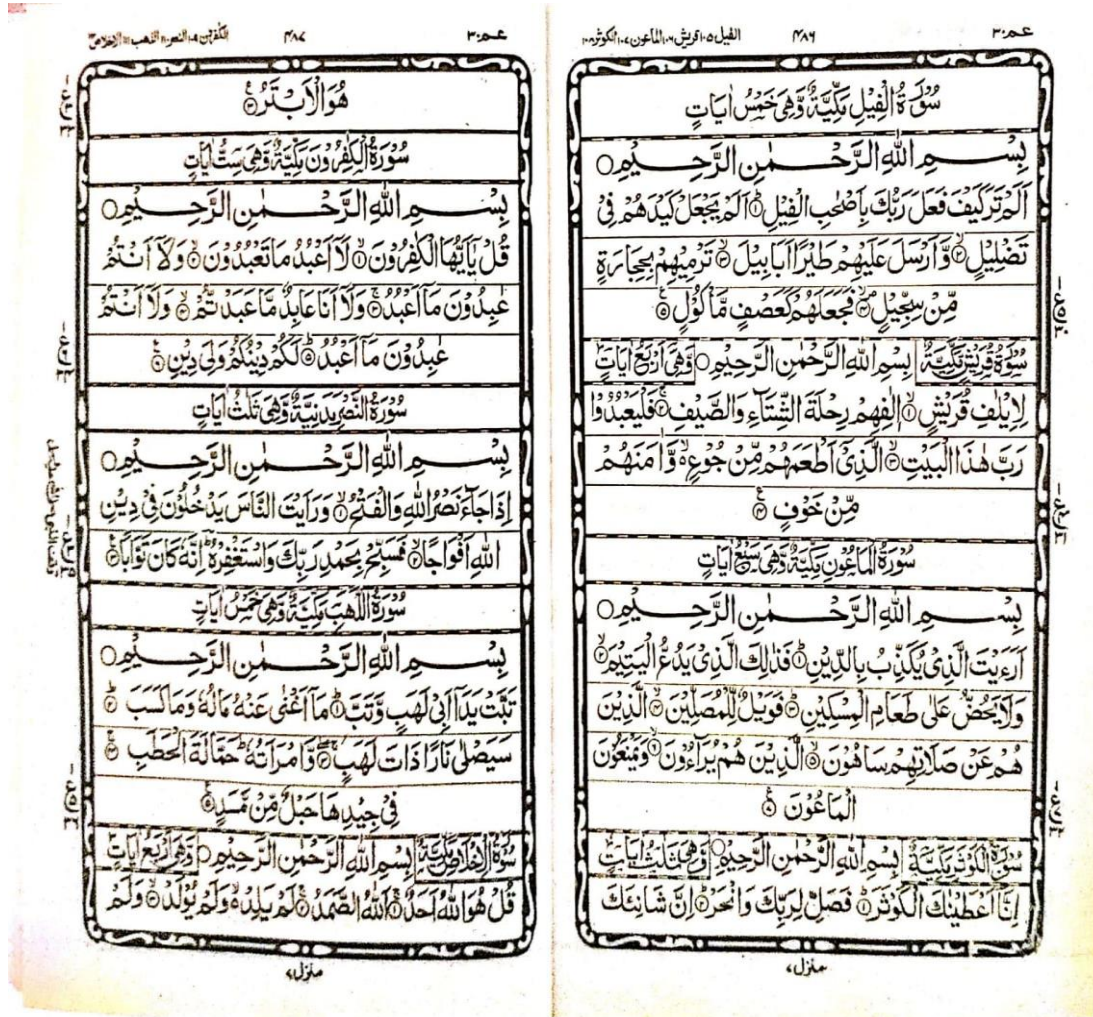 عـم ۳۰
۴۸۶
الفیل ۱۰۵ قریش ۱۰۶ الماعون ۱۰۷ الکوثر ۱۰۸
سُوْرَةُ الْفِيْلِ مَكِّيَّةٌ وَّهِيَ خَمْسُ اٰيَاتٍ
بِسْمِ اللّٰهِ الرَّحْمٰنِ الرَّحِيْمِ ○
اَلَمْ تَرَ كَيْفَ فَعَلَ رَبُّكَ بِاَصْحٰبِ الْفِيْلِ ۱ اَلَمْ يَجْعَلْ كَيْدَهُمْ فِيْ
تَضْلِيْلٍ ۲ وَّاَرْسَلَ عَلَيْهِمْ طَيْرًا اَبَابِيْلَ ۳ تَرْمِيْهِمْ بِحِجَارَةٍ
مِّنْ سِجِّيْلٍ ۴ فَجَعَلَهُمْ كَعَصْفٍ مَّاْكُوْلٍ ۵
سُوْرَةُ قُرَيْشٍ مَكِّيَّةٌ بِسْمِ اللّٰهِ الرَّحْمٰنِ الرَّحِيْمِ ○ وَهِيَ اَرْبَعُ اٰيَاتٍ
لِاِيْلٰفِ قُرَيْشٍ ۱ اٖلٰفِهِمْ رِحْلَةَ الشِّتَآءِ وَالصَّيْفِ ۲ فَلْيَعْبُدُوْا
رَبَّ هٰذَا الْبَيْتِ ۳ الَّذِيْٓ اَطْعَمَهُمْ مِّنْ جُوْعٍ وَّاٰمَنَهُمْ
مِّنْ خَوْفٍ ۴
سُوْرَةُ الْمَاعُوْنِ مَكِّيَّةٌ وَّهِيَ سَبْعُ اٰيَاتٍ
بِسْمِ اللّٰهِ الرَّحْمٰنِ الرَّحِيْمِ ○
اَرَءَيْتَ الَّذِيْ يُكَذِّبُ بِالدِّيْنِ ۱ فَذٰلِكَ الَّذِيْ يَدُعُّ الْيَتِيْمَ ۲
وَلَا يَحُضُّ عَلٰى طَعَامِ الْمِسْكِيْنِ ۳ فَوَيْلٌ لِّلْمُصَلِّيْنَ ۴ الَّذِيْنَ
هُمْ عَنْ صَلَاتِهِمْ سَاهُوْنَ ۵ الَّذِيْنَ هُمْ يُرَآءُوْنَ ۶ وَيَمْنَعُوْنَ
الْمَاعُوْنَ ۷
سُوْرَةُ الْكَوْثَرِ مَكِّيَّةٌ بِسْمِ اللّٰهِ الرَّحْمٰنِ الرَّحِيْمِ ○ وَهِيَ ثَلٰثُ اٰيَاتٍ
اِنَّآ اَعْطَيْنٰكَ الْكَوْثَرَ ۱ فَصَلِّ لِرَبِّكَ وَانْحَرْ ۲ اِنَّ شَانِئَكَ
منزل ۷
عـم ۳۰
۴۸۷
الکٰفرون ۱۰۹ النصر ۱۱۰ اللهب ۱۱۱ الاخلاص ۱۱۲
هُوَ الْاَبْتَرُ ۳
سُوْرَةُ الْكٰفِرُوْنَ مَكِّيَّةٌ وَّهِيَ سِتُّ اٰيَاتٍ
بِسْمِ اللّٰهِ الرَّحْمٰنِ الرَّحِيْمِ ○
قُلْ يٰٓاَيُّهَا الْكٰفِرُوْنَ ۱ لَآ اَعْبُدُ مَا تَعْبُدُوْنَ ۲ وَلَآ اَنْتُمْ
عٰبِدُوْنَ مَآ اَعْبُدُ ۳ وَلَآ اَنَا عَابِدٌ مَّا عَبَدْتُّمْ ۴ وَلَآ اَنْتُمْ
عٰبِدُوْنَ مَآ اَعْبُدُ ۵ لَكُمْ دِيْنُكُمْ وَلِيَ دِيْنِ ۶
سُوْرَةُ النَّصْرِ مَدَنِيَّةٌ وَّهِيَ ثَلٰثُ اٰيَاتٍ
بِسْمِ اللّٰهِ الرَّحْمٰنِ الرَّحِيْمِ ○
اِذَا جَآءَ نَصْرُ اللّٰهِ وَالْفَتْحُ ۱ وَرَاَيْتَ النَّاسَ يَدْخُلُوْنَ فِيْ دِيْنِ
اللّٰهِ اَفْوَاجًا ۲ فَسَبِّحْ بِحَمْدِ رَبِّكَ وَاسْتَغْفِرْهُ اِنَّهٗ كَانَ تَوَّابًا ۳
سُوْرَةُ اللَّهَبِ مَكِّيَّةٌ وَّهِيَ خَمْسُ اٰيَاتٍ
بِسْمِ اللّٰهِ الرَّحْمٰنِ الرَّحِيْمِ ○
تَبَّتْ يَدَآ اَبِيْ لَهَبٍ وَّتَبَّ ۱ مَآ اَغْنٰى عَنْهُ مَالُهٗ وَمَا كَسَبَ ۲
سَيَصْلٰى نَارًا ذَاتَ لَهَبٍ ۳ وَّامْرَاَتُهٗ حَمَّالَةَ الْحَطَبِ ۴
فِيْ جِيْدِهَا حَبْلٌ مِّنْ مَّسَدٍ ۵
سُوْرَةُ الْاِخْلَاصِ مَكِّيَّةٌ بِسْمِ اللّٰهِ الرَّحْمٰنِ الرَّحِيْمِ ○ وَهِيَ اَرْبَعُ اٰيَاتٍ
قُلْ هُوَ اللّٰهُ اَحَدٌ ۱ اَللّٰهُ الصَّمَدُ ۲ لَمْ يَلِدْ وَلَمْ يُوْلَدْ ۳ وَلَمْ
منزل ۷